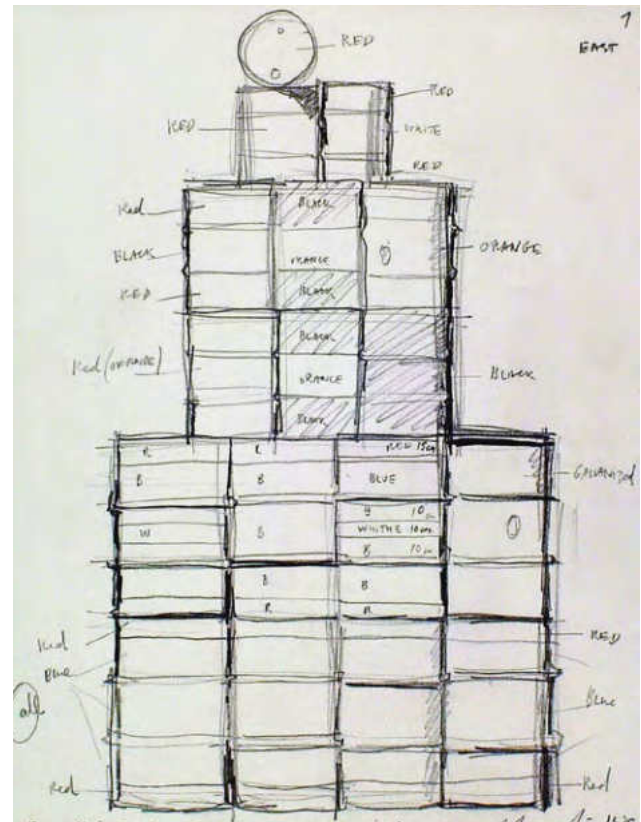 1
RED
EAST
RED
RED
WHITE
RED
Red
BLACK
BLACK
ORANGE
ORANGE
RED
BLACK
BLACK
Red (ORANGE)
ORANGE
BLACK
BLACK
R
R
RED 15cm
B
B
BLUE
GALVANIZED
B 10cm
W
B
WHITHE 10cm
B 10cm
B
B
R
R
Red
RED
Blue
all
Blue
Red
Red